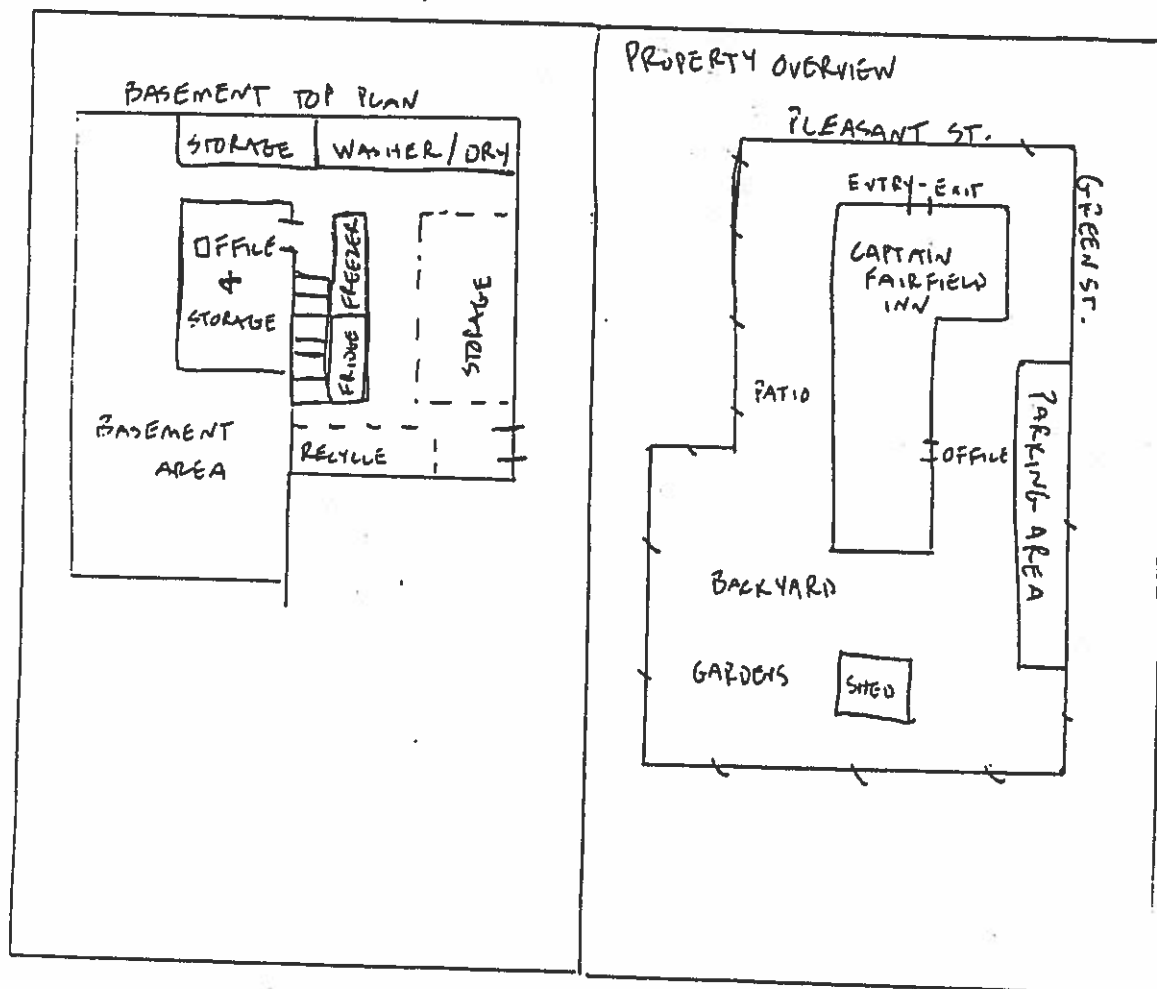 BASEMENT TOP PLAN
STORAGE
WASHER/DRY
OFFICE
+
STORAGE
FREEZER
FRIDGE
STORAGE
BASEMENT
AREA
RECYCLE
PROPERTY OVERVIEW
PLEASANT ST.
GREEN ST.
ENTRY-EXIT
CAPTAIN
FAIRFIELD
INN
PATIO
OFFICE
PARKING AREA
BACKYARD
GARDENS
SHED